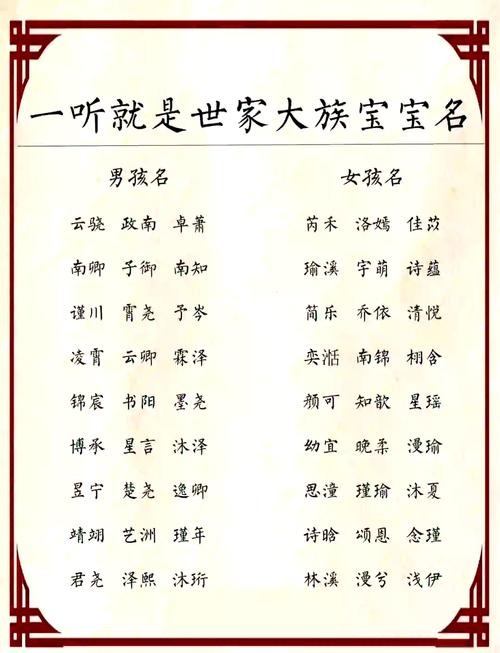 一听就是世家大族宝宝名
男孩名 女孩名
云骁 政南 卓萧 芮禾 洛嫣 佳苡
南卿 子御 南知 瑜溪 宇萌 诗蕴
谨川 霄尧 予岑 简乐 乔依 清悦
凌霄 云卿 霖泽 奕湉 南锦 栩含
锦宸 书阳 墨尧 颜可 知歆 星瑶
博承 星言 沐泽 幼宜 晚柔 漫瑜
昱宁 楚尧 逸卿 思潼 瑾瑜 沐夏
靖翊 艺洲 瑾年 诗晗 颂恩 念瑾
君尧 泽熙 沐珩 林溪 漫兮 浅伊